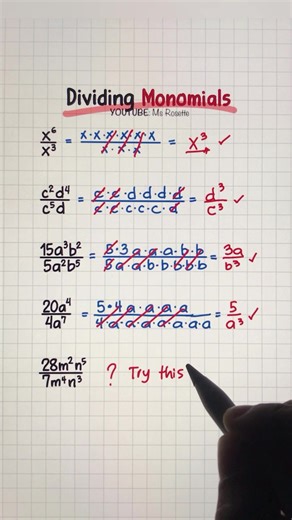 Dividing Monomials
YOUTUBE: Ms Rosette
x⁶/x³ = x·x·x·x·x·x/x·x·x = x³ ✓
c²d⁴/c⁵d = c·c·d·d·d·d/c·c·c·c·c·d = d³/c³ ✓
15a³b²/5a²b⁵ = 5·3·a·a·a·b·b/5·a·a·b·b·b·b·b = 3a/b³ ✓
20a⁴/4a⁷ = 5·4·a·a·a·a/4·a·a·a·a·a·a·a = 5/a³ ✓
28m²n⁵/7m⁴n³ ? Try this